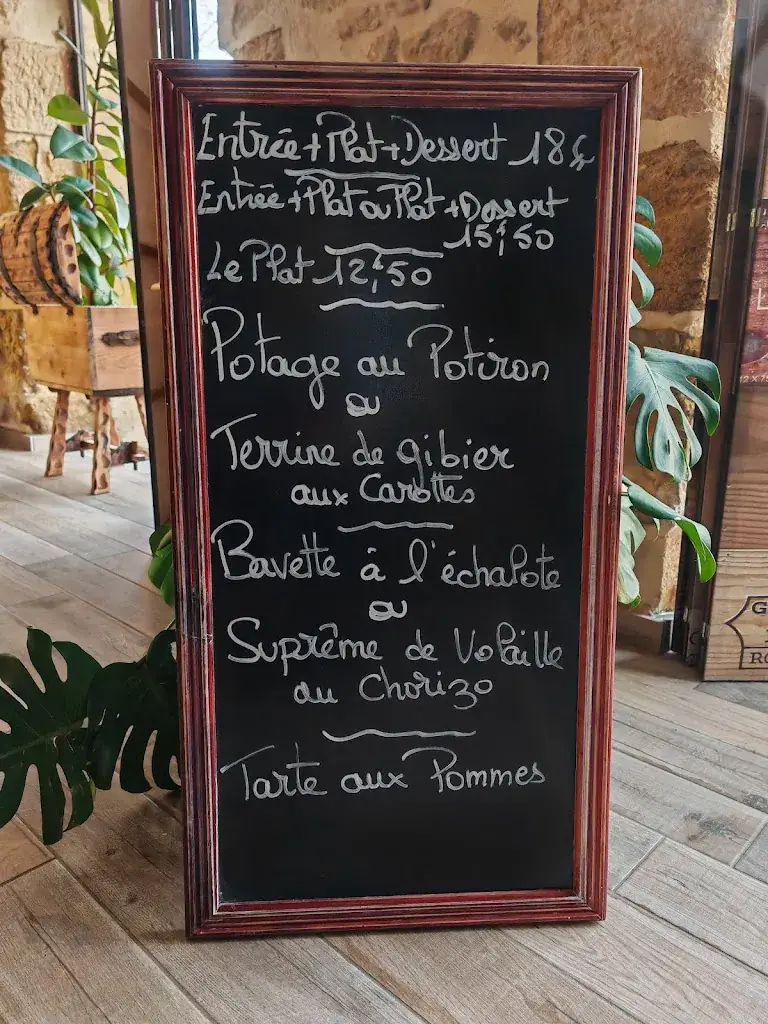 Entrée + Plat + Dessert 18€
Entrée + Plat ou Plat + Dessert
15,€50
Le Plat 12,€50
Potage au Potiron
ou
Terrine de gibier
aux Carottes
Bavette à l'échalote
ou
Suprême de Volaille
au Chorizo
Tarte aux Pommes